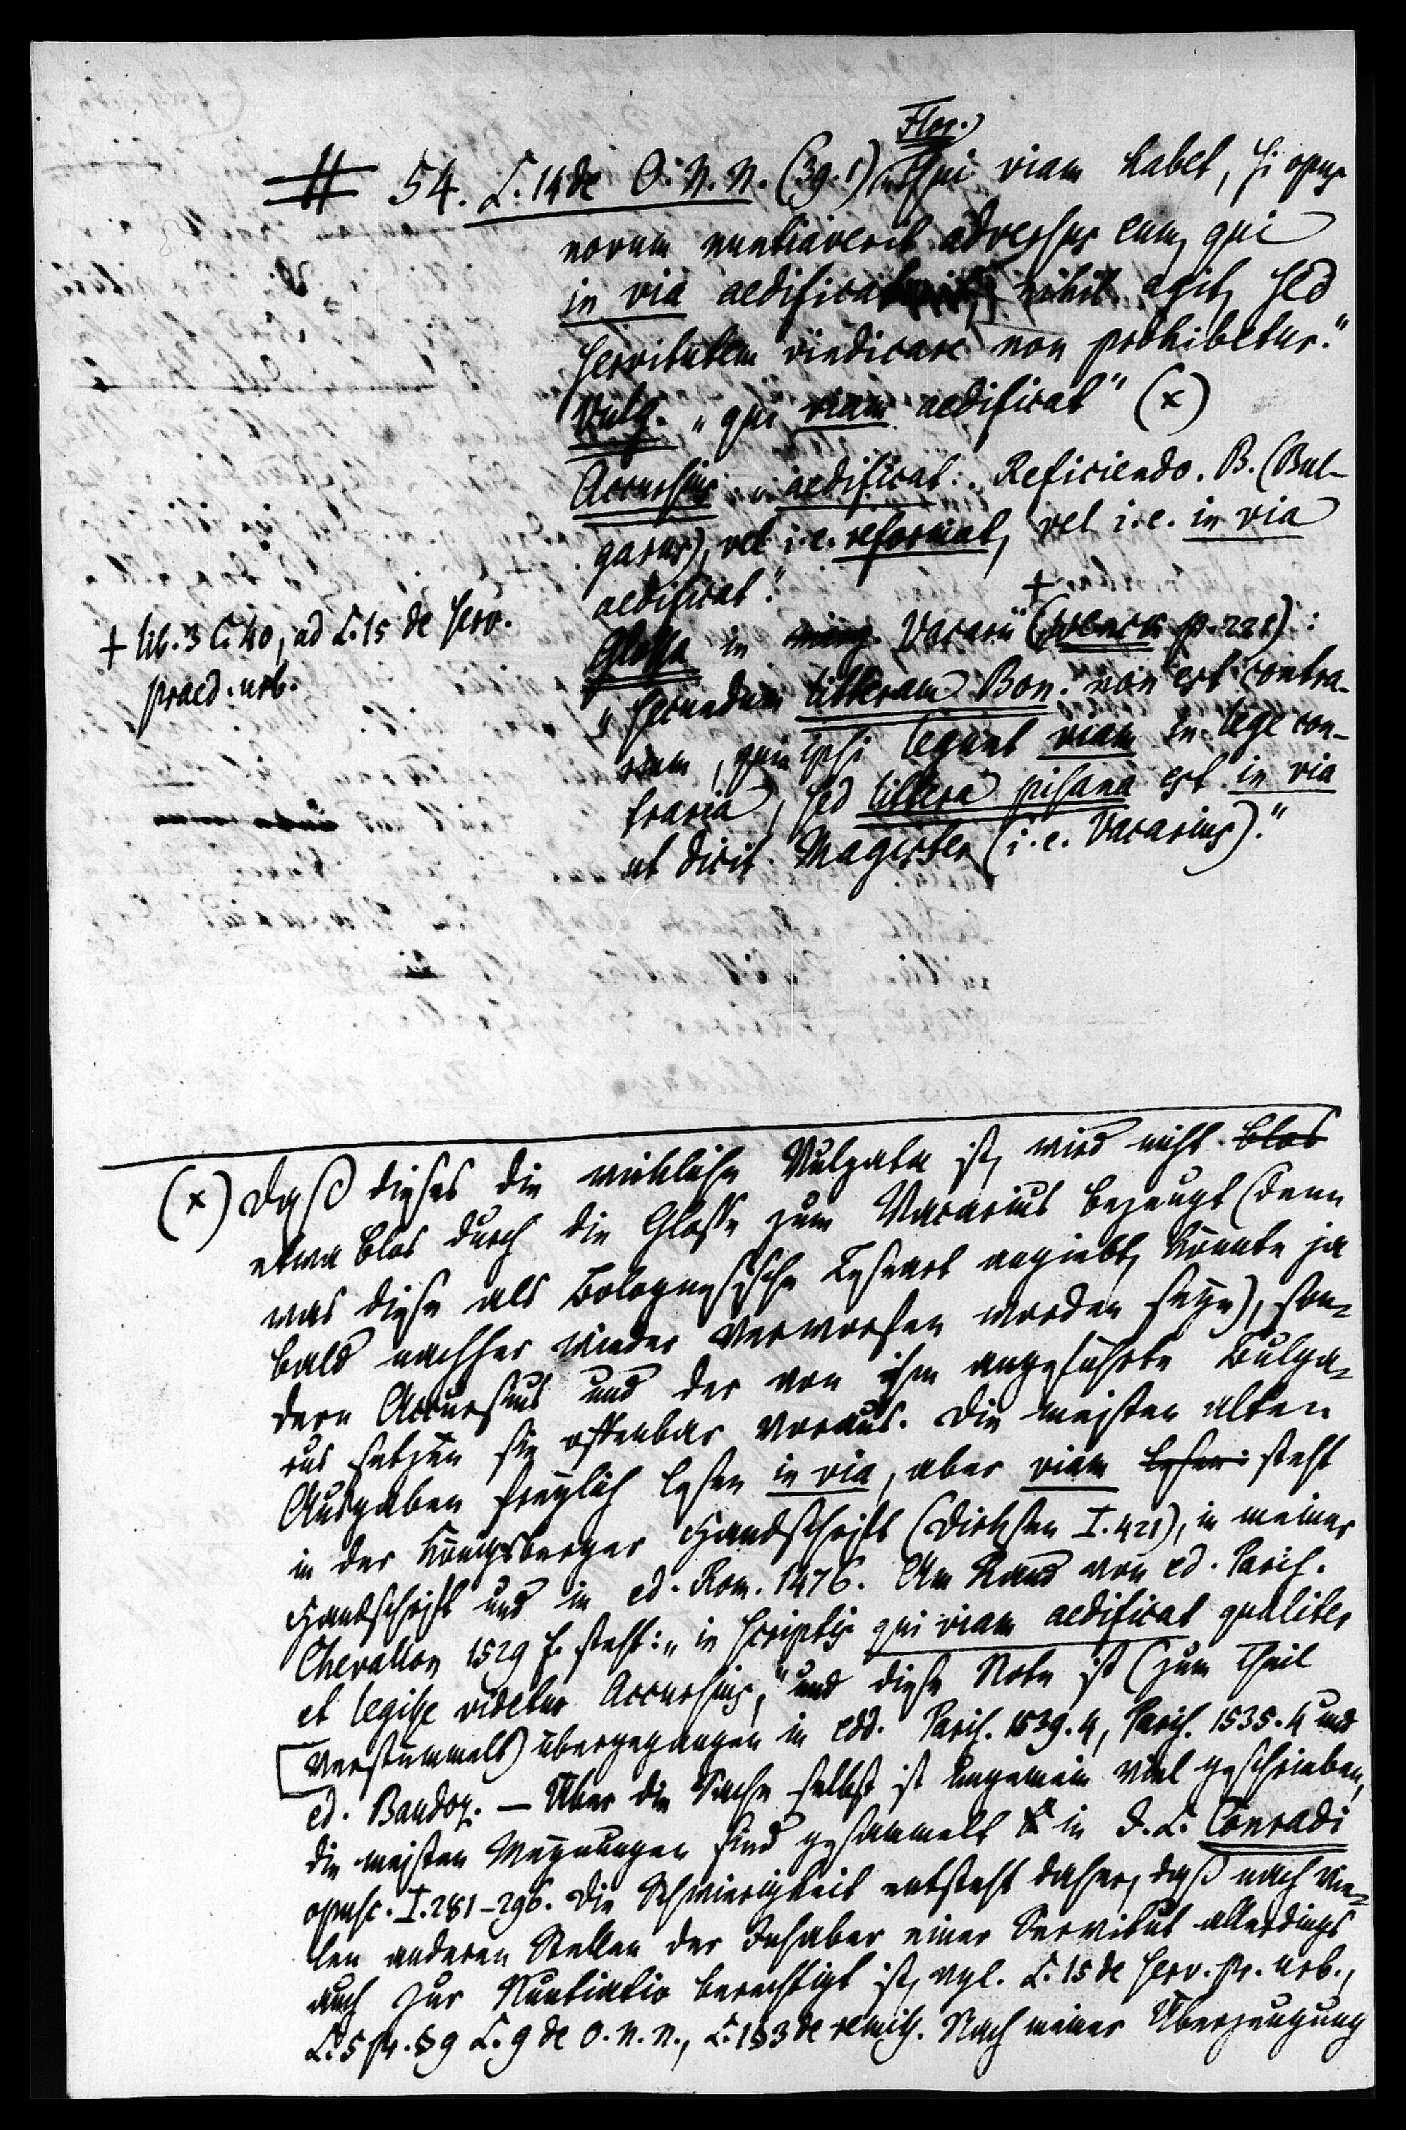 Flor.
# 54. L. 14 de O. N. N. (39.1) „Qui viam habet, si opus
novum nuntiaverit adversus eum, qui
in via aedificat, nihil agit, sed
servitutem vindicare non prohibetur."
Vulg. „qui viam aedificat" (x)
Accursius „aedificat: Reficiendo. B. (Bul-
garus), vel i. e. reformat, vel i. e. in via
aedificat."
+
Glossa in Vacarii (Wenck p. 228):
+ lib. 3 C. 40, ad L. 15 de serv.
praed. urb.
„Secundum litteram Bon. non est contra-
rium, quia ipsi legunt viam in lege con-
traria, sed littera pisana est in via
ut dicit Magister (i. e. Vacarius)."
(x) Daß dieses die wirkliche Vulgata ist, wird nicht blos
etwa blos durch die Glosse zum Vacarius bezeugt (denn
was diese als Bolognesische Leseart angiebt, könnte ja
bald nachher wieder verworfen worden seyn), son-
dern Accursius und der von ihm angeführte Bulga-
rus setzen sie offenbar voraus. Die meisten alten
Ausgaben freylich lesen in via, aber viam lesen steht
in der Königsberger Handschrift (Dirksen I. 421), in meiner
Handschrift und in ed. Rom. 1476. Am Rand von ed. Paris.
Chevallon 1529 f. steht: „in scriptis qui viam aedificat qualiter
et legisse videtur Accursius," und diese Note ist (zum Theil
verstümmelt) übergegangen in edd. Paris. 1539. 4, Paris. 1535. 4 und
ed. Baudoz. — Über die Sache selbst ist ungemein viel geschrieben,
die meisten Meynungen sind gesammelt in F. C. Conradi
opusc. I. 281–296. Die Schwierigkeit entsteht daher, daß nach vie-
len anderen Stellen der Inhaber einer Servitut allerdings
auch zur Nuntiatio berechtigt ist, vgl. L. 15 de serv. pr. urb.,
L. 5 pr. § 9 L. 9 de o. n. n., L. 1 § 3 de remiss. Nach meiner Überzeugung